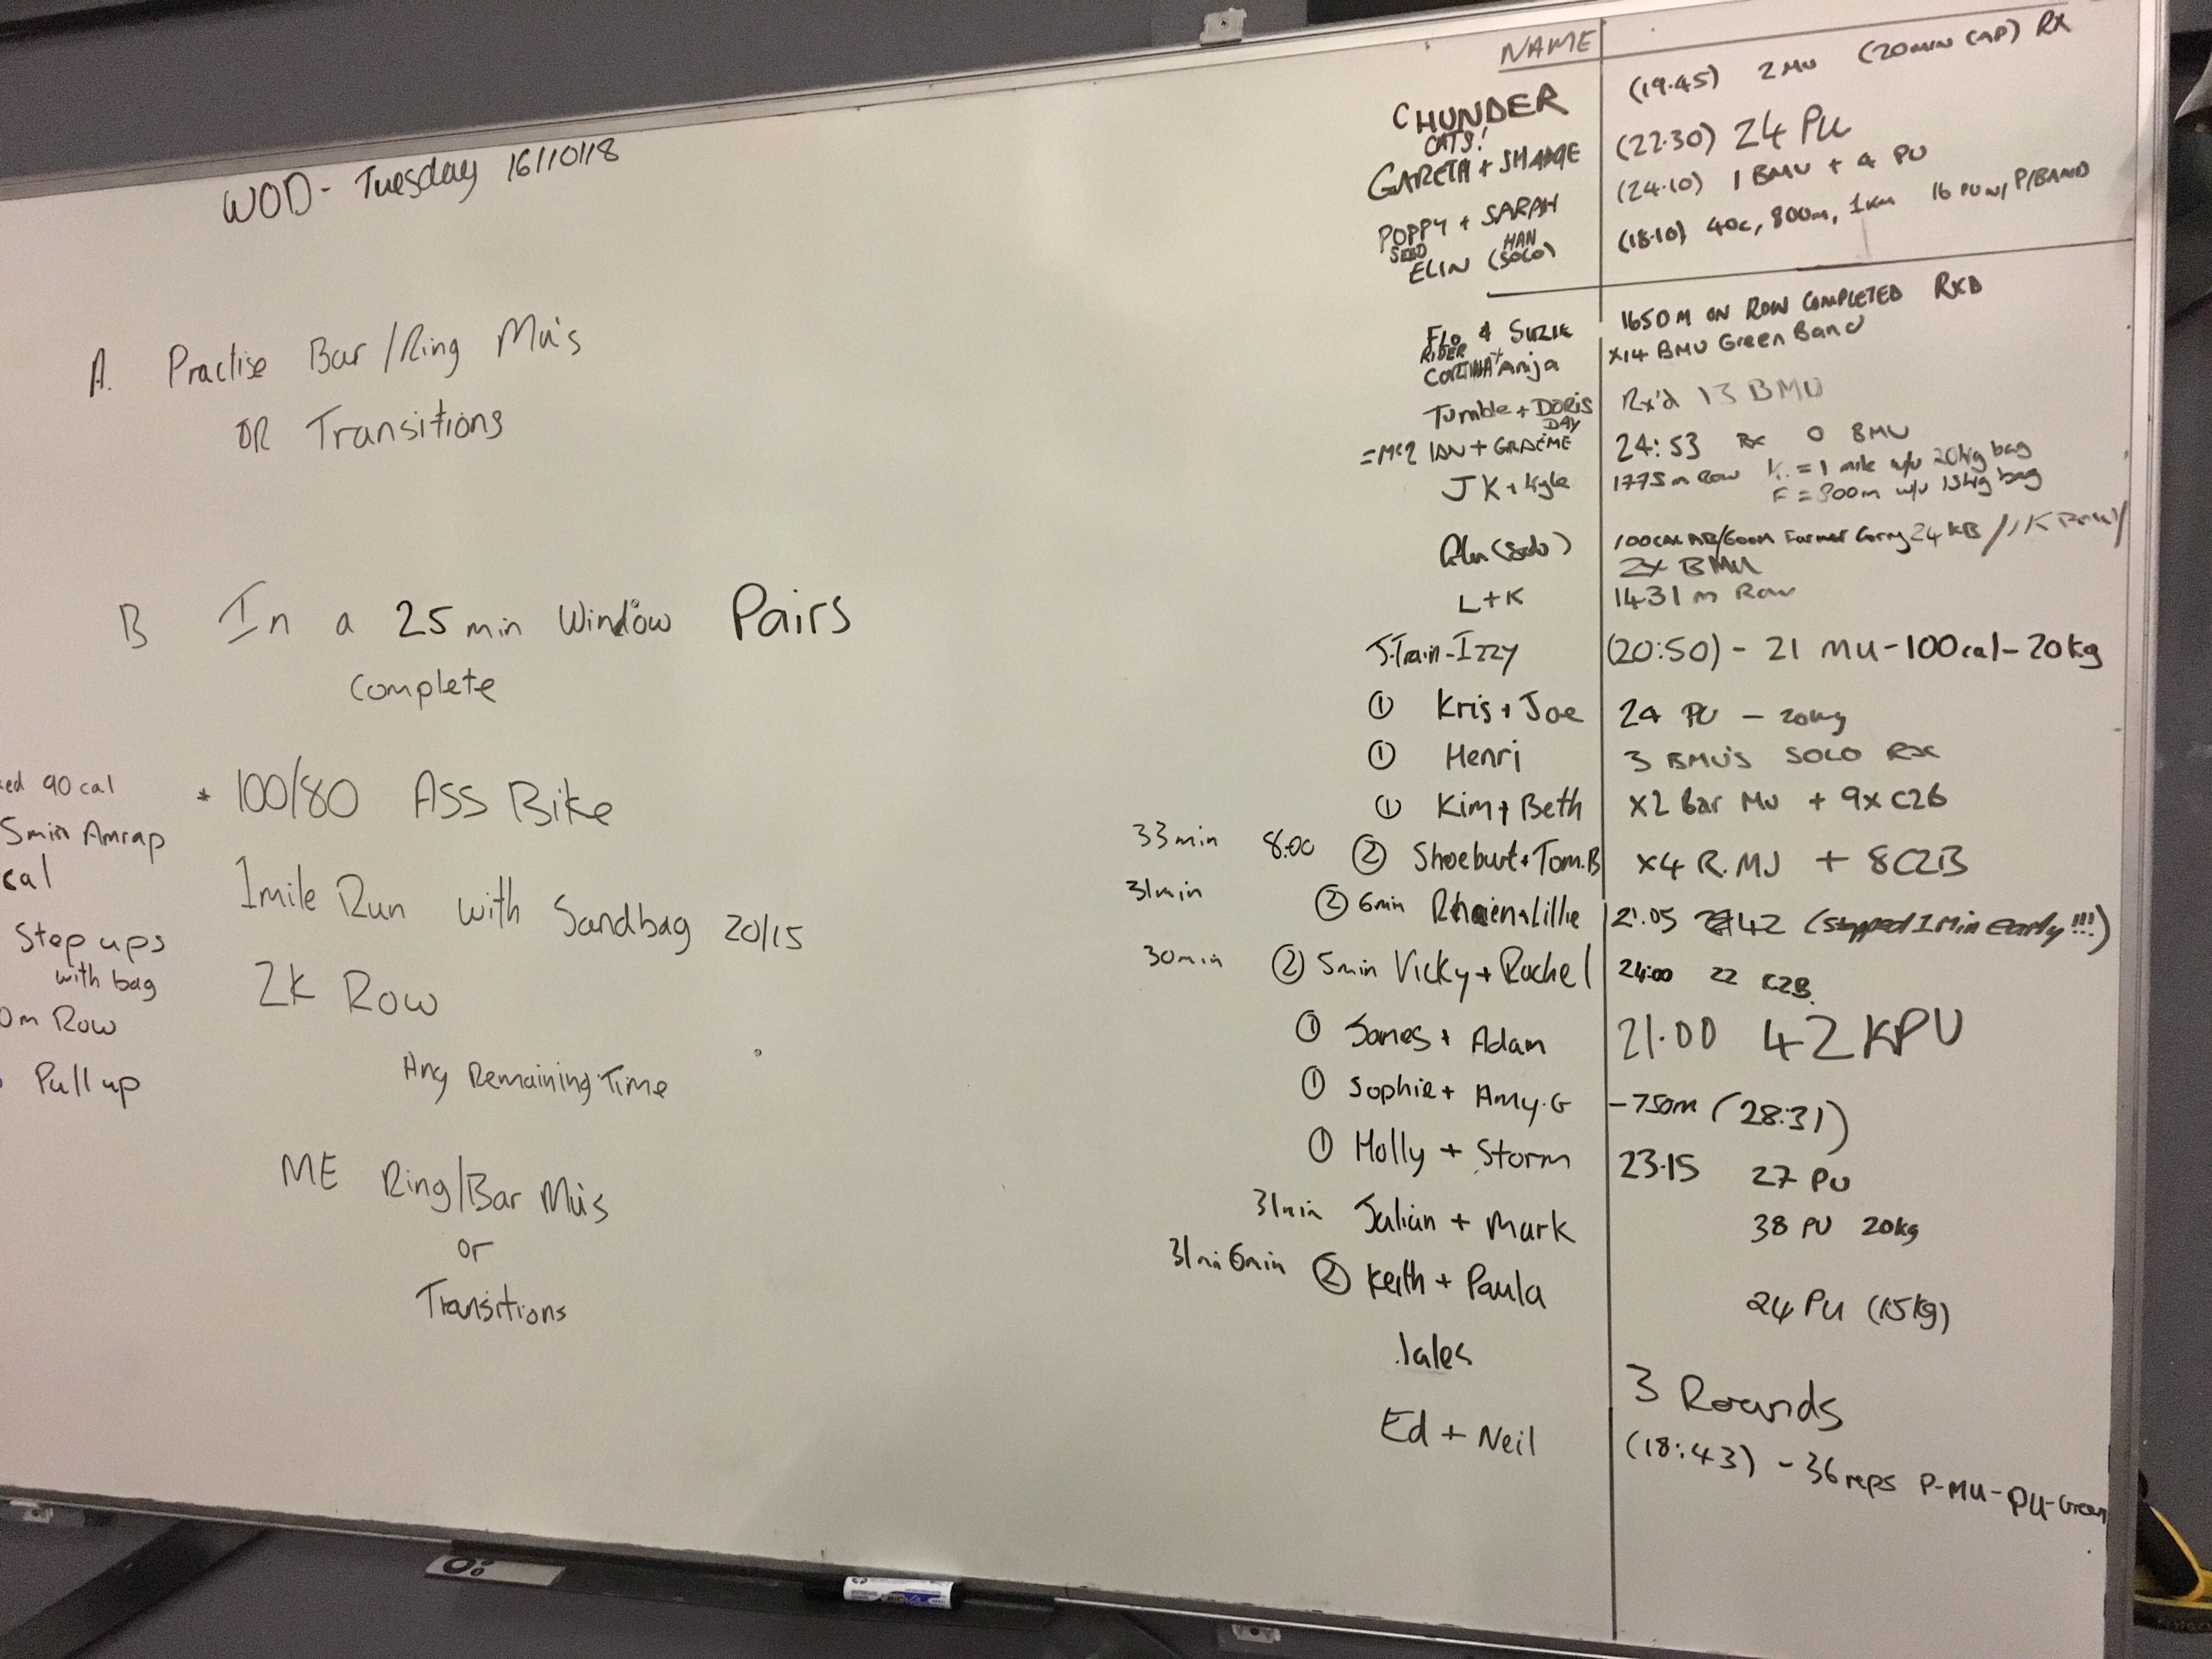 WOD - Tuesday 16/10/18
A. Practise Bar/Ring Mu's
OR Transitions
B In a 25 min Window Pairs
Complete
* 100/80 Ass Bike
1mile Run with Sandbag 20/15
2k Row
Any Remaining Time
ME Ring/Bar Mu's
or
Transitions
90 cal
5min Amrap
cal
Step ups
with bag
Row
Pull up
NAME
CHUNDER (19.45) 2 MU (20 MIN CAP) RX
CATS!
GARETH + (22.30) 24 PU
POPPY + SARAH (24.10) 1 BMU + 4 PU
SEED HAN
ELIN (SOLO) (18.10) 40c, 800m, 1km 16 PU w/ P/BAND
FLO & SUZIE 1650M ON ROW COMPLETED RXD
RIDER
CORTINA + Anja x14 BMU Green Band
Tumble + DORIS Rx'd 13 BMU
DAY
IAN + GRAEME 24:53 Rx 0 BMU
JK + Kyle 1775m Row K = 1 mile w/u 20kg bag
F = 800m w/u 15kg bag
(Solo) 100CAL AB/600M Farmer Carry 24 KB
2x BMU
L + K 1431 m Row
J.Train-Izzy (20:50) - 21 MU - 100cal - 20kg
① Kris + Joe 24 PU - 20kg
① Henri 3 BMU'S SOLO RX
① Kim + Beth x2 Bar MU + 9x C2B
33min 8:00 ② + Tom.B x4 R.MU + 8 C2B
31min ② 6min Lillie 21.05 42 (stopped 1 Min early!!!)
30min ② 5min Vicky + Rachel 24:00 22 C2B
① James + Adam 21.00 42 KPU
① Sophie + Amy.G -750m (28:31)
① Holly + Storm 23.15 27 PU
31min Julian + Mark 38 PU 20kg
31min 6min ② Keith + Paula 24 PU (15kg)
Jales 3 Rounds
Ed + Neil (18:43) - 36 reps P-MU-PU-Green